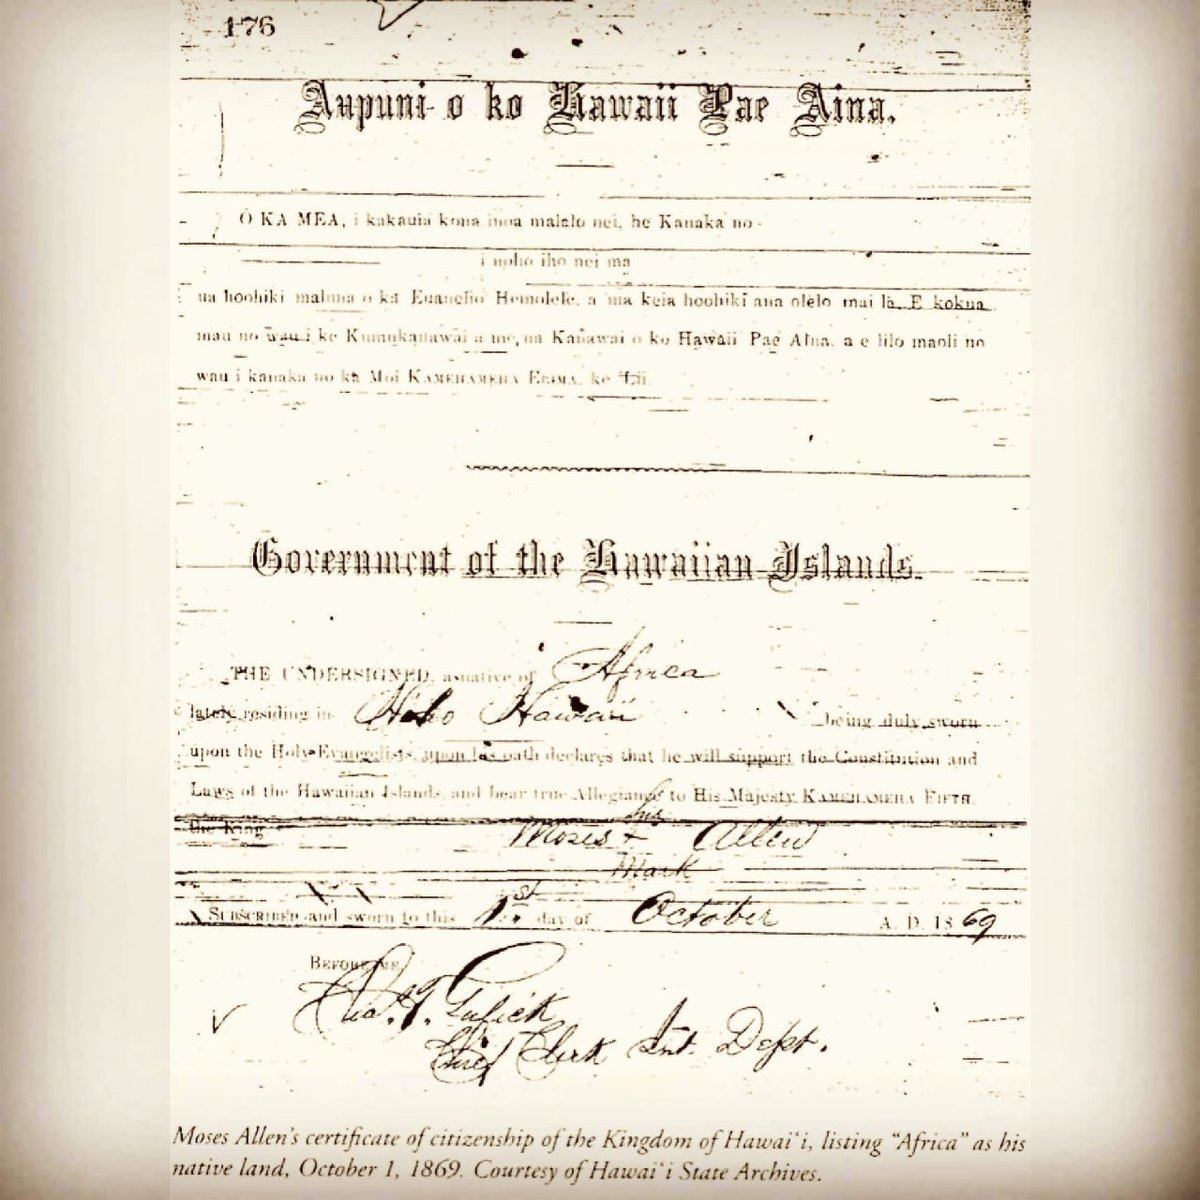 176
Aupuni o ko Hawaii Pae Aina.
O KA MEA, i kakauia kona inoa malalo nei, he Kanaka no
i noho iho nei ma
ua hoohiki maluna o ka Euanelio Hemolele, a ma keia hoohiki ana olelo mai la. E kokua
mau no wau i ke Kumukanawai a me na Kanawai o ko Hawaii Pae Aina, a e lilo maoli no
wau i kanaka no ka Moi KAMEHAMEHA ELIMA, ke
Government of the Hawaiian Islands.
THE UNDERSIGNED, a native of Africa
lately residing in Hilo Hawaii being duly sworn
upon the Holy Evangelists, upon his oath declares that he will support the Constitution and
Laws of the Hawaiian Islands, and bear true Allegiance to His Majesty KAMEHAMEHA FIFTH,
the King
his
Moses + Allen
Mark
SUBSCRIBED and sworn to this 1st day of October A. D. 1869
BEFORE ME,
Chas. T. Gulick
Chief Clerk Int. Dept.
Moses Allen's certificate of citizenship of the Kingdom of Hawai`i, listing "Africa" as his
native land, October 1, 1869. Courtesy of Hawai`i State Archives.